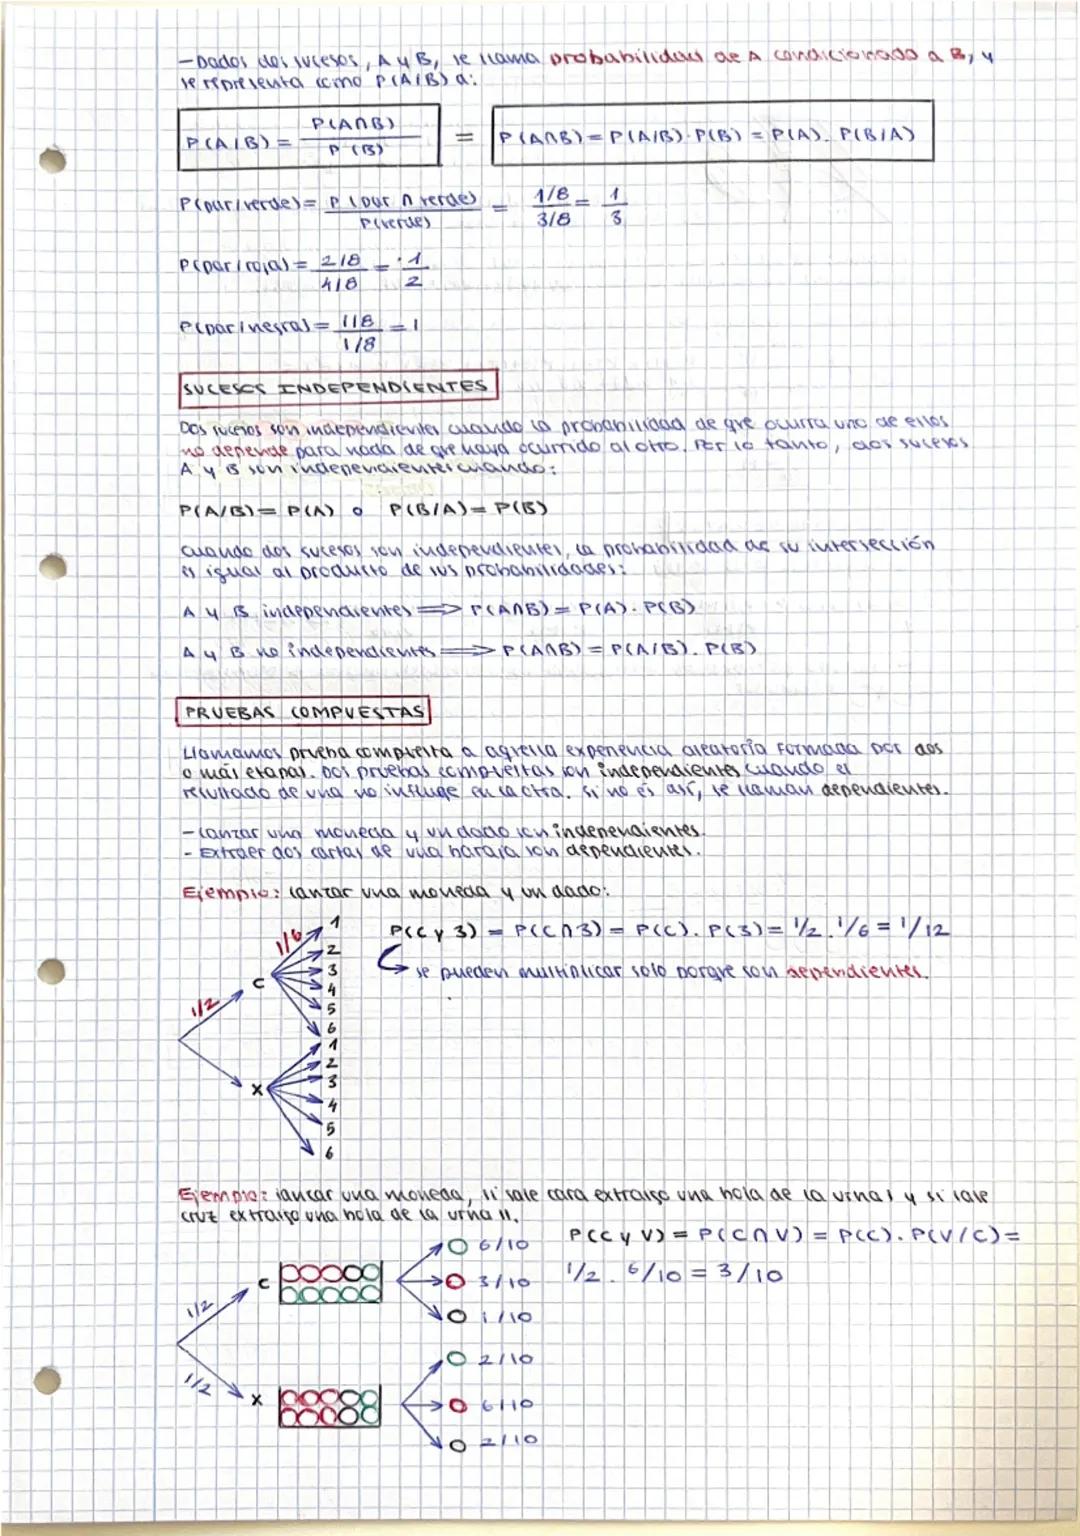 -Dados dos sucesos, A y B, se llama probabilidad de A condicionado a B, y
se representa como P(A/B) a:
P(A/B) = P(A∩B) / P(B) = P(A∩B) = P(A/B) · P(B) = P(A). P(B/A)
P(par/verde) = P(par ∩ verde) / P(verde) = 1/8 / 3/8 = 1/3
P(par/roja) = 2/8 / 4/8 = 1/2
P(par/negra) = 1/8 / 1/8 = 1
SUCESOS INDEPENDIENTES
Dos sucesos son independientes cuando la probabilidad de que ocurra uno de ellos
no depende para nada de que haya ocurrido al otro. Por lo tanto, dos sucesos
A y B son independientes cuando:
P(A/B) = P(A) o P(B/A) = P(B)
Cuando dos sucesos son independientes, la probabilidad de su intersección
es igual al producto de sus probabilidades:
A y B independientes ⟹ P(A∩B) = P(A) · P(B)
A y B no independientes ⟹ P(A∩B) = P(A/B). P(B)
PRUEBAS COMPUESTAS
Llamamos prueba compuesta a aquella experiencia aleatoria formada por dos
o más etapas. Dos pruebas compuestas son independientes cuando el
resultado de una no influye en la otra. Si no es así, se llaman dependientes.
-Lanzar una moneda y un dado son independientes.
- Extraer dos cartas de una baraja son dependientes.
Ejemplo: lanzar una moneda y un dado:
1/2
C
1/6
1
2
3
4
5
6
X
1
2
3
4
5
6
P(C y 3) = P(C∩3) = P(C). P(3) = 1/2 . 1/6 = 1/12
se pueden multiplicar solo porque son dependientes.
Ejemplo: lanzar una moneda, si sale cara extraigo una bola de la urna I y si sale
cruz extraigo una bola de la urna II.
P(C y V) = P(C∩V) = P(C). P(V/C) =
1/2 . 6/10 = 3/10
1/2
C
6/10
3/10
1/10
1/2
X
2/10
6/10
2/10